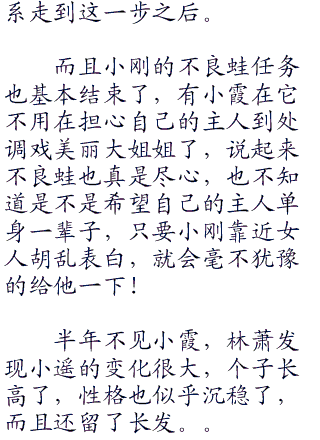 系走到这一步之后。
而且小刚的不良蛙任务
也基本结束了，有小霞在它
不用在担心自己的主人到处
调戏美丽大姐姐了，说起来
不良蛙也真是尽心，也不知
道是不是希望自己的主人单
身一辈子，只要小刚靠近女
人胡乱表白，就会毫不犹豫
的给他一下！
半年不见小霞，林萧发
现小遥的变化很大，个子长
高了，性格也似乎沉稳了，
而且还留了长发。。